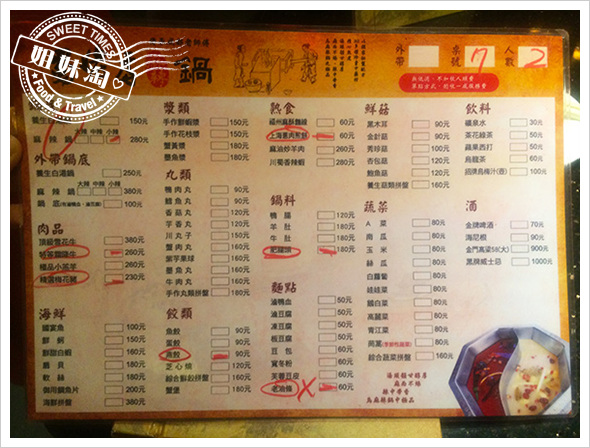 SWEET TIMES
姐妹淘
Food & Travel
鍋
外帶
桌號 7
人數 2
養生 150元
大辣 中辣 小辣
麻辣鍋 280元
外帶鍋底
養生白湯鍋 250元
大辣 中辣 小辣
麻辣鍋 380元
100元
肉品
頂級雪花牛 380元
260元
極品小羔羊 260元
精選梅花豬 230元
海鮮
國宴魚 100元
鮮蚵 150元
鮮甜白蝦 160元
扇貝 180元
軟絲 180元
御用鯛魚片 200元
海鮮拼盤 380元
漿類
手作蝦漿 150元
手作花枝漿 150元
蟹黃漿 180元
墨魚漿 180元
丸類
鴨肉丸 90元
鱈魚丸 90元
香菇丸 120元
芋香丸 120元
川丸子 150元
蟹肉丸 160元
160元
墨魚丸 180元
牛肉丸 180元
手作丸類拼盤 180元
餃類
魚餃 90元
蛋餃 90元
燕餃 90元
芝心燒 120元
綜合鮮餃拼盤 160元
蟹堡 180元
熱食
福州麻酥麵線 60元
60元
麻油炒羊肉 260元
川蜀香辣蝦 280元
鍋料
鴨腸 120元
羊肚 120元
牛肚 120元
肥腸頭 180元
麵點
滷鴨血 50元
滷豆腐 50元
凍豆腐 50元
板豆腐 50元
豆包 50元
寬冬粉 50元
芙蓉豆皮 50元
老油條 60元
鮮菇
黑木耳 80元
金針菇 80元
秀珍菇 80元
杏包菇 100元
香菇 100元
養生菇類拼盤 160元
蔬菜
A菜 80元
南瓜 80元
玉米 80元
絲瓜 80元
白蘿蔔 80元
娃娃菜 80元
80元
高麗菜 80元
青江菜 80元
茼蒿(季節性蔬菜) 80元
綜合蔬菜拼盤 160元
飲料
礦泉水 30元
茶花綠茶 30元
蘋果西打 50元
烏龍茶 60元
招牌烏梅汁(壺) 100元
酒
金牌啤酒 70元
海尼根 90元
金門高粱58(大) 900元
黑牌威士忌 1000元